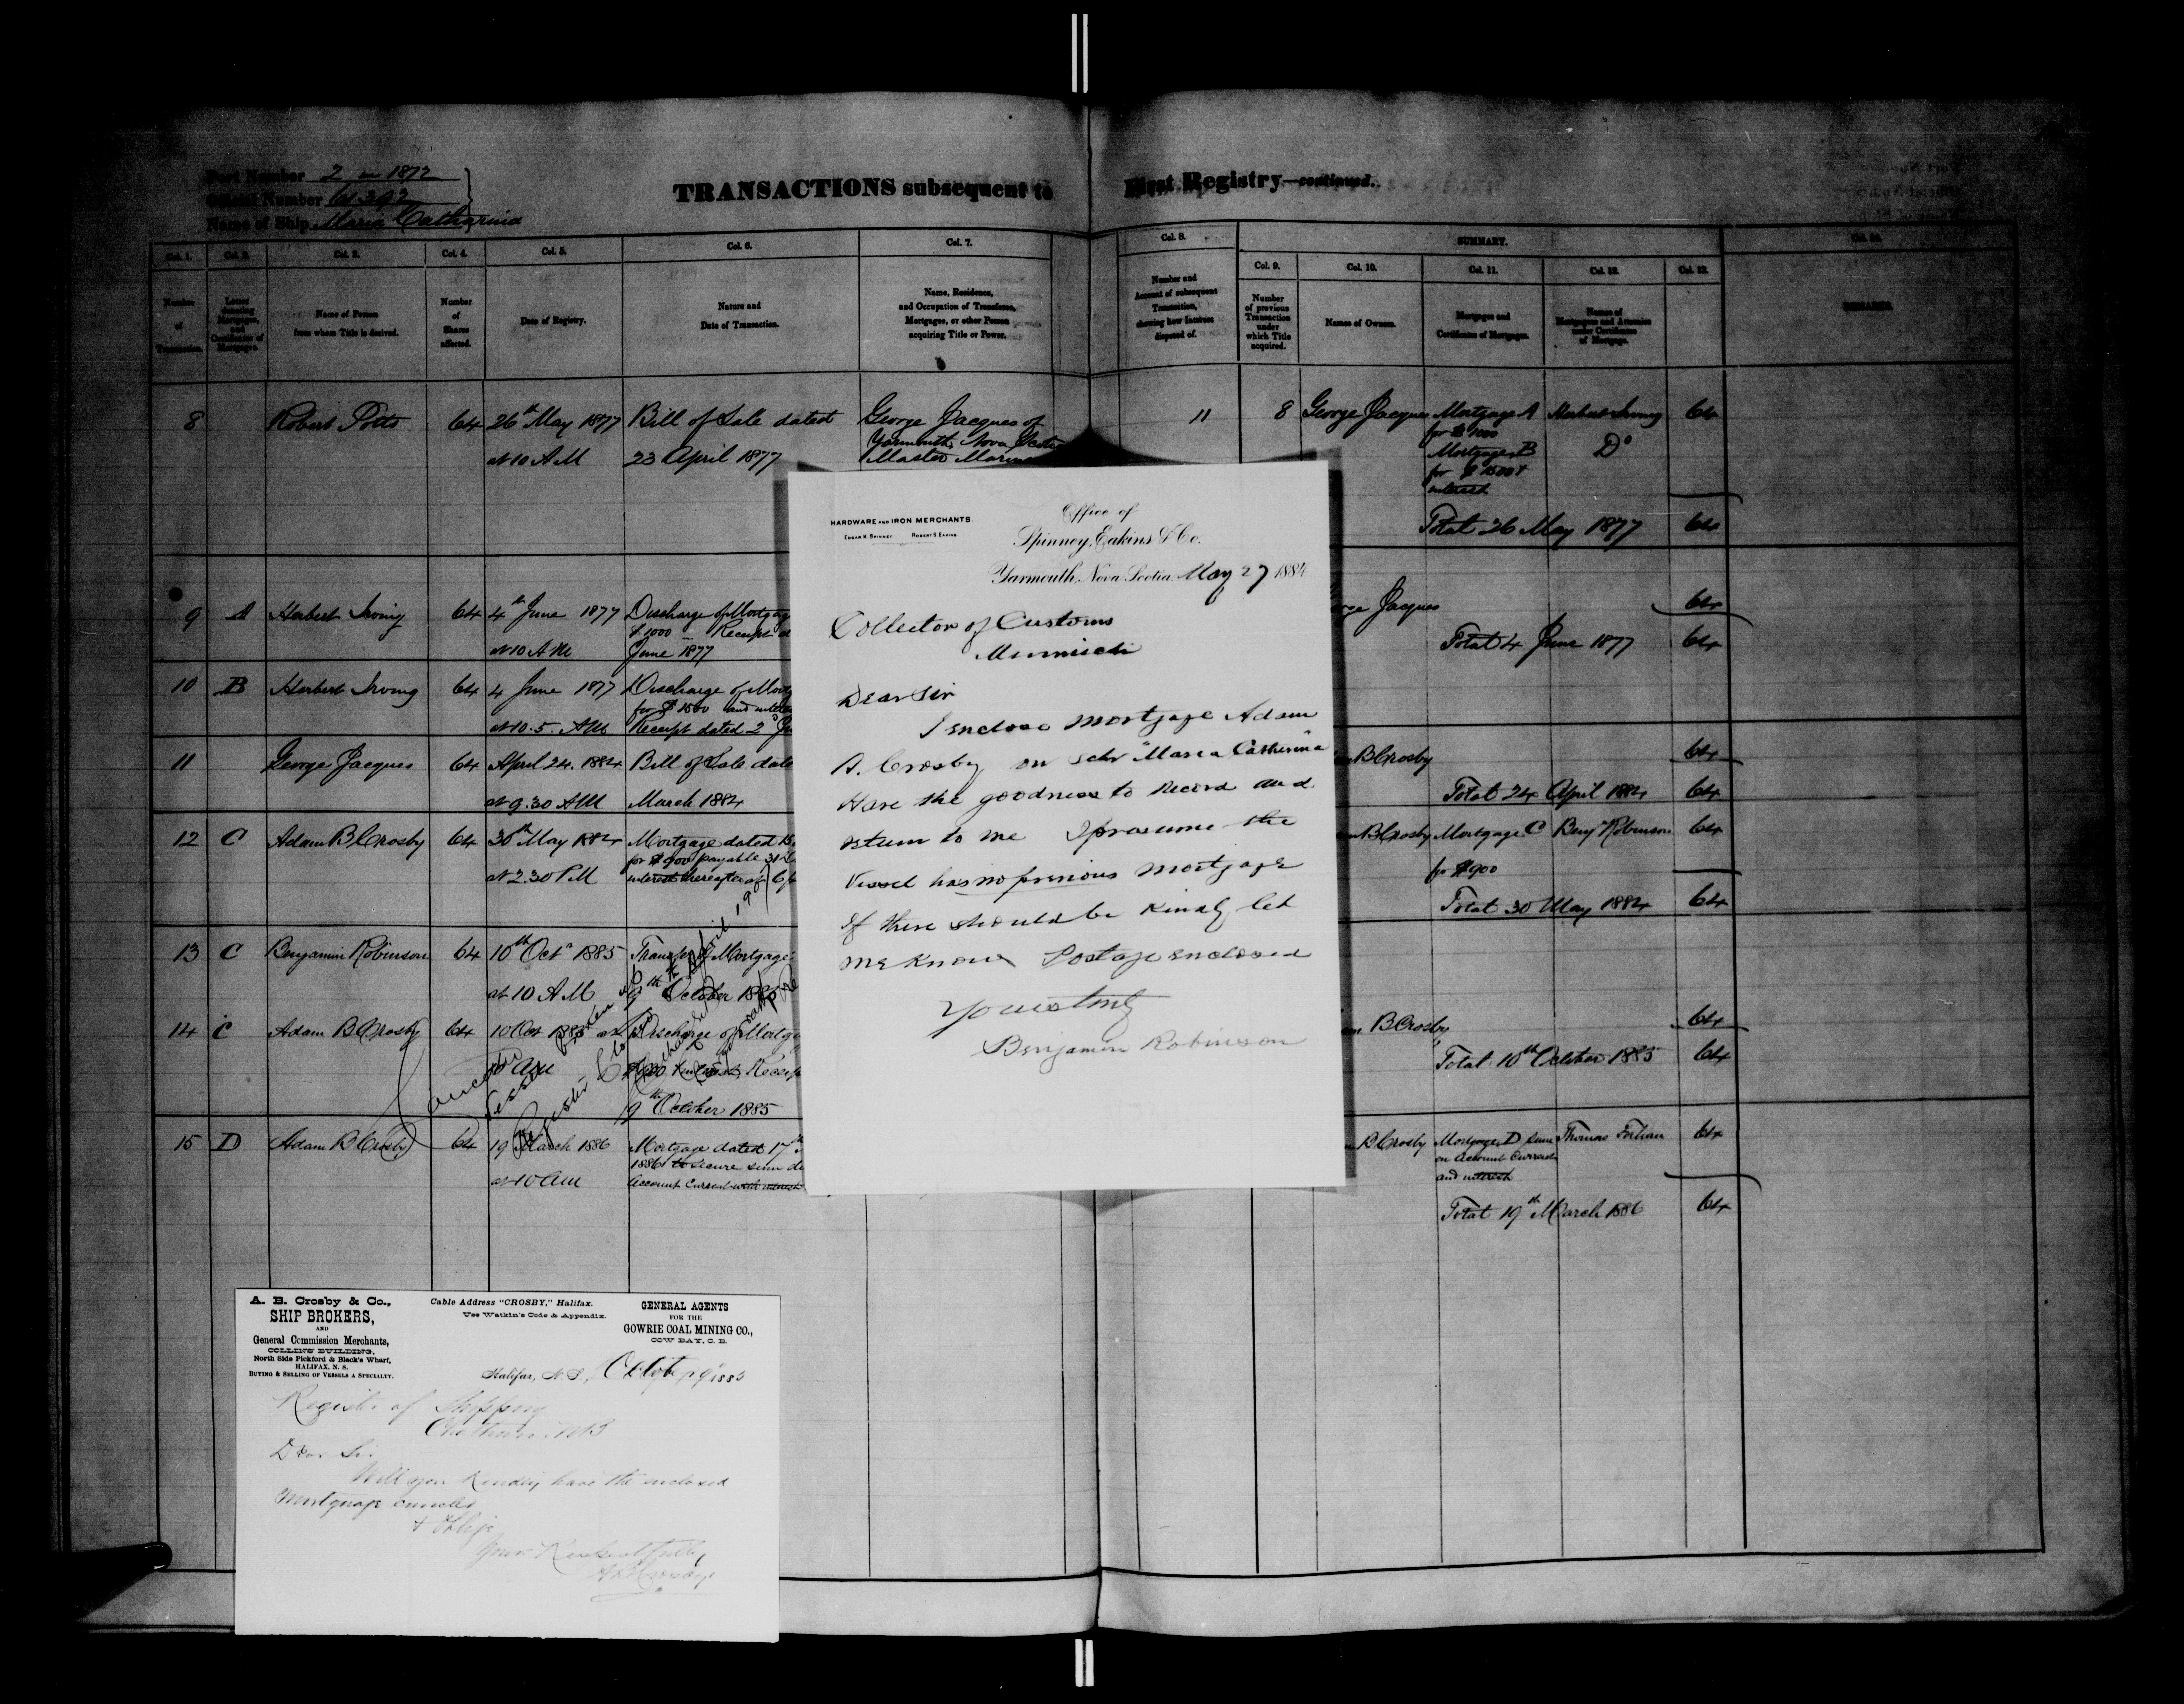 Port Number 2 in 1872
Official Number
Name of Ship Maria Catharina
TRANSACTIONS subsequent to First Registry—continued.
Col. 1. Col. 2. Col. 3. Col. 4. Col. 5. Col. 6. Col. 7. Col. 8. SUMMARY.
Col. 9. Col. 10. Col. 11. Col. 12. Col. 13.
Number of Transaction.
Letter denoting Mortgages, and Certificates of Mortgages.
Name of Person from whom Title is derived.
Number of Shares affected.
Date of Registry.
Nature and Date of Transaction.
Name, Residence, and Occupation of Transferee, Mortgagee, or other Person acquiring Title or Power.
Number and Account of subsequent Transaction, showing how Interest disposed of.
Number of previous Transaction under which Title acquired.
Names of Owners.
Mortgages and Certificates of Mortgages.
Names of Mortgagees and Attornies under Certificates of Mortgage.
REMARKS.
8 Robert Potts 64 26th May 1877 Bill of Sale dated George Jacques of
Yarmouth Nova
at 10 AM 23 April 1877 Master
11 8 George Jacques Mortgage A Herbert Irving 64
for $1000
Mortgage B Do
for $1500 +
interest
Total 26 May 1877 64
9 A Herbert Irving 64 4th June 1877 Discharge of
$1000 – Receipt
at 10 AM June 1877
Jacques 64
Total 4 June 1877 64
10 B Herbert Irving 64 4 June 1877 Discharge of
for $1500 and
at 10.5. AM Receipt dated 2d
11 George Jacques 64 April 24. 1884 Bill of Sale
at 9.30 AM March 1884
B Crosby 64
Total 24 April 1884 64
12 C Adam B Crosby 64 30th May 1884 Mortgage dated
for $900 payable 31
at 2.30 PM interest thereafter at
B Crosby Mortgage C Benjn Robinson 64
for $900
Total 30 May 1884 64
13 C Benjamin Robinson 64 10th Octr 1885 Transfer of Mortgage
at 10 AM 9th October 1885
14 C Adam B Crosby 64 10 Oct 1885 at Discharge of
10 AM
9th October 1885
B Crosby 64
Total 10th October 1885 64
15 D Adam B Crosby 64 19 March 1886 Mortgage dated 17th
1886 to secure sum
at 10 am Account Current with interest
B Crosby Mortgage D sum Thomas 64
on Account Current
and interest
Total 19th March 1886 64
HARDWARE AND IRON MERCHANTS.
EDGAR K. SPINNEY ROBERT S. EAKINS
Office of
Spinney, Eakins & Co.
Yarmouth, Nova Scotia. May 27 1884
Collector of Customs
Dear Sir
I enclose Mortgage Adam
B. Crosby on Schr "Maria Catherina"
Have the goodness to Record and
return to me I presume the
Vessel has no previous Mortgage
If there should be Kindly let
me know Postage enclosed
Yours truly
Benjamin Robinson
A. B. Crosby & Co.,
SHIP BROKERS,
AND
General Commission Merchants,
COLLINS' BUILDING,
North Side Pickford & Black's Wharf,
HALIFAX, N. S.
BUYING & SELLING OF VESSELS A SPECIALTY.
Cable Address "CROSBY," Halifax.
Use Watkin's Code & Appendix.
GENERAL AGENTS
FOR THE
GOWRIE COAL MINING CO.,
COW BAY, C. B.
Halifax, N. S., 1885
Register of Shipping
Chatham. NB
Dear Sir
Will you kindly have the enclosed
Mortgage canceled
& Oblige
Yours Respectfully
A B Crosby